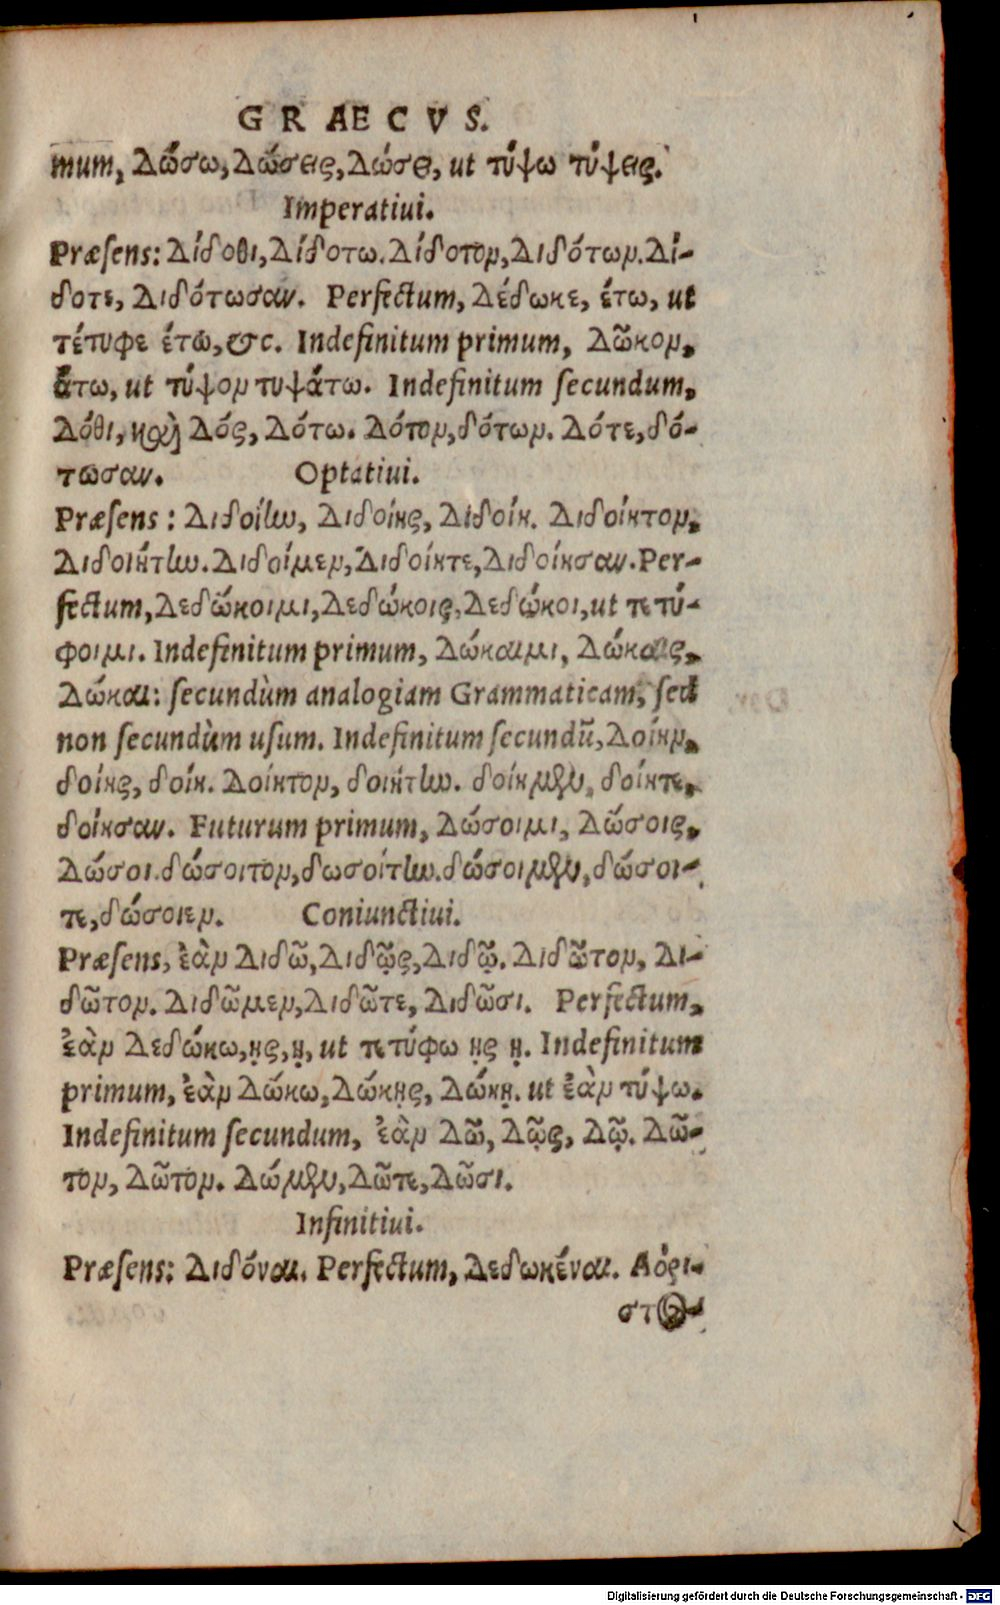 GRAECVS.
mum, Δώσω, Δώσεις, Δώσει, ut τύψω τύψεις.
Imperatiui.
Præsens: Δίδοθι, Δίδοτω. Δίδοτον, Διδότων. Δί-
δοτε, Διδότωσαν. Perfectum, Δέδωκε, έτω, ut
τέτυφε έτω, &c. Indefinitum primum, Δῶκον,
άτω, ut τύψον τυψάτω. Indefinitum secundum,
Δόθι, καὶ Δός, Δότω. Δότον, δότων. Δότε, δό-
τωσαν. Optatiui.
Præsens: Διδοίην, Διδοίης, Διδοίη. Διδοίητον,
Διδοιήτην. Διδοίμεν, Διδοίητε, Διδοίησαν. Per-
fectum, Δεδώκοιμι, Δεδώκοις, Δεδώκοι, ut τετύ-
φοιμι. Indefinitum primum, Δώκαιμι, Δώκαις,
Δώκαι: secundùm analogiam Grammaticam, sed
non secundùm usum. Indefinitum secundũ, Δοίην,
δοίης, δοίη. Δοίητον, δοιήτην. δοίημεν, δοίητε,
δοίησαν. Futurum primum, Δώσοιμι, Δώσοις,
Δώσοι. δώσοιτον, δωσοίτην. δώσοιμεν, δώσοι-
τε, δώσοιεν. Coniunctiui.
Præsens, ἐὰν Διδῶ, Διδῷς, Διδῷ. Διδῶτον, Δι-
δῶτον. Διδῶμεν, Διδῶτε, Διδῶσι. Perfectum,
ἐὰν Δεδώκω, ῃς, ῃ, ut τετύφω ῃς ῃ. Indefinitum
primum, ἐὰν Δώκω, Δώκῃς, Δώκῃ. ut ἐὰν τύψω.
Indefinitum secundum, ἐὰν Δῶ, Δῷς, Δῷ. Δῶ-
τον, Δῶτον. Δώμεν, Δῶτε, Δῶσι.
Infinitiui.
Præsens: Διδόναι. Perfectum, Δεδωκέναι. Αόρι-
στος
Digitalisierung gefördert durch die Deutsche Forschungsgemeinschaft - DFG